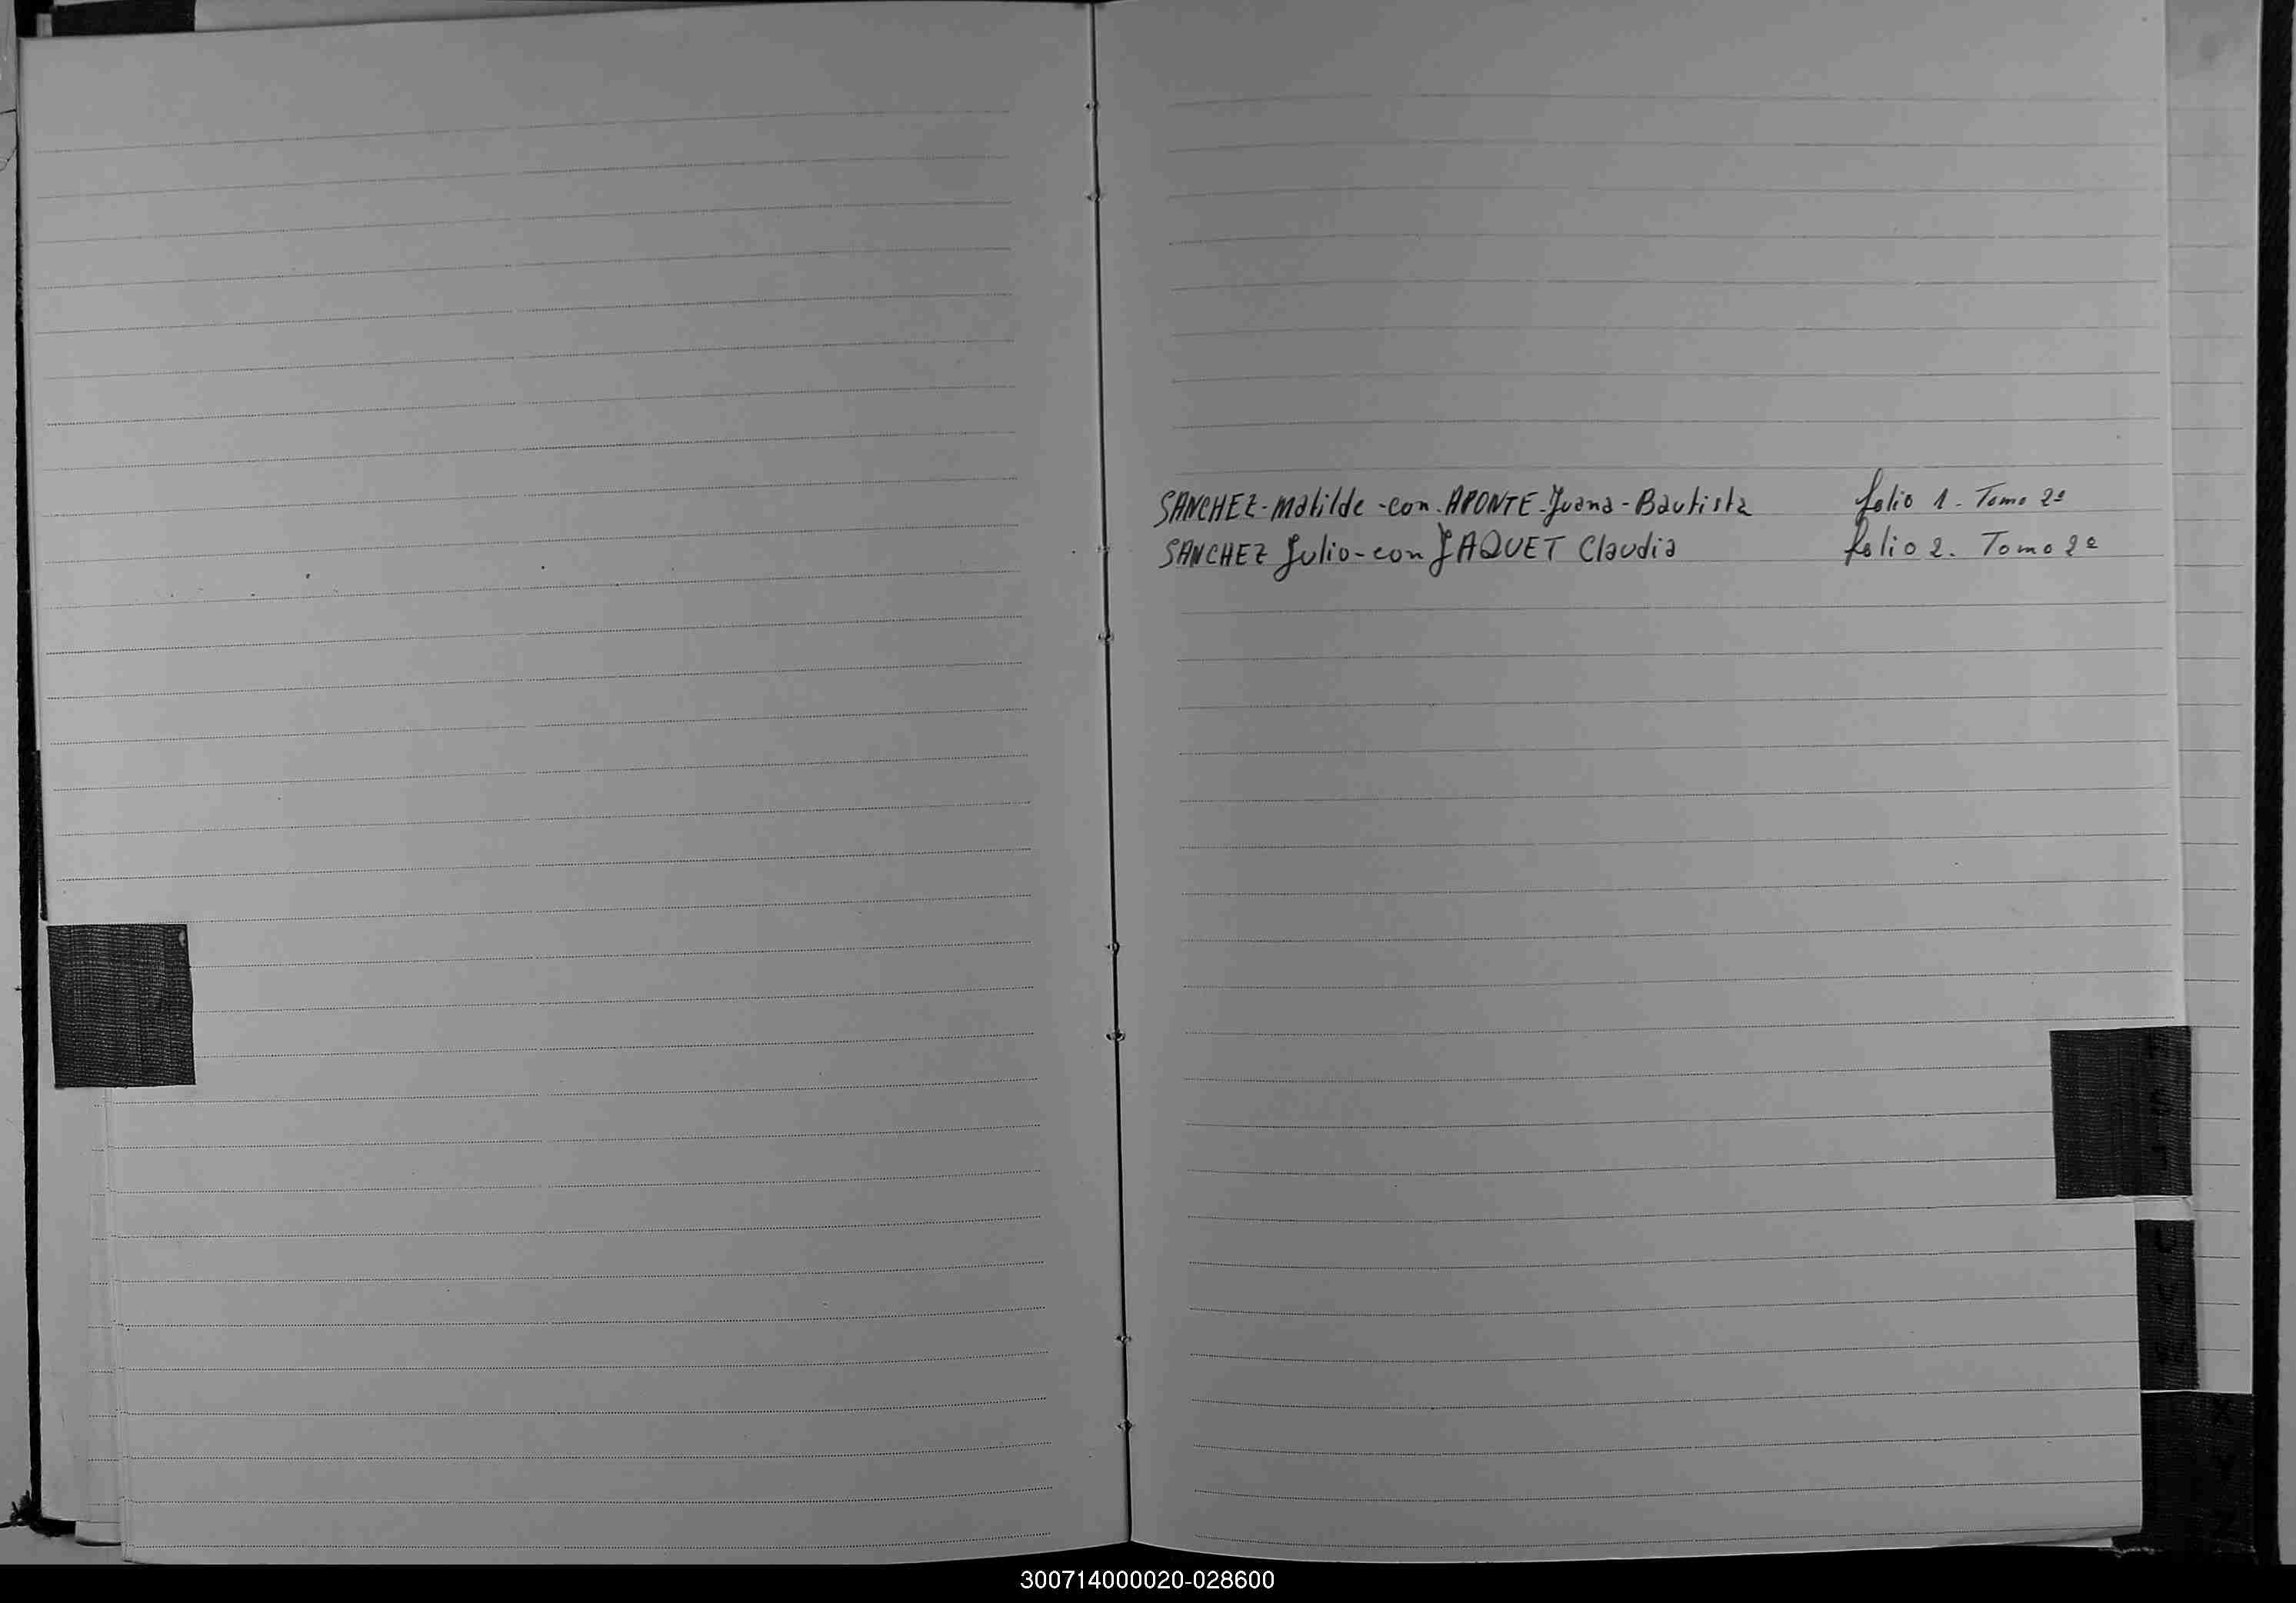 SANCHEZ-Matilde-con-APONTE-Juana-Bautista folio 1- Tomo 2º
SANCHEZ Julio-con JAQUET Claudia folio 2. Tomo 2º
300714000020-028600